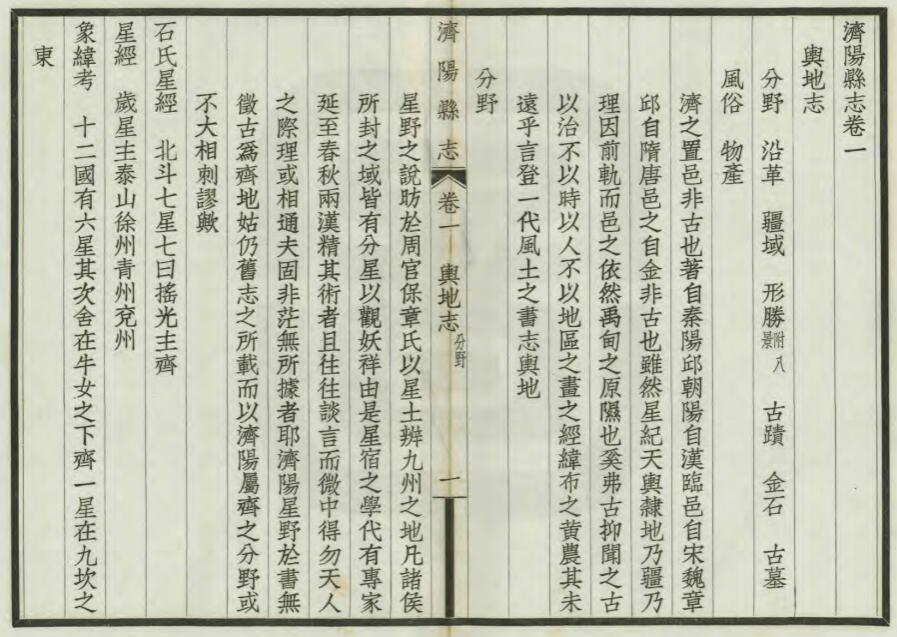 濟陽縣志卷一
輿地志
分野 沿革 疆域 形勝附八景 古蹟 金石 古墓
風俗 物產
濟之置邑非古也著自秦陽邱朝陽自漢臨邑自宋魏章
邱自隋唐邑之自金非古也雖然星紀天輿隸地乃疆乃
理因前軌而邑之依然禹甸之原隰也奚弗古抑聞之古
以治不以時以人不以地區之畫之經緯布之黃農其未
遠乎言登一代風土之書志輿地
分野
濟陽縣志 卷一 輿地志 分野 一
星野之說昉於周官保章氏以星土辨九州之地凡諸侯
所封之域皆有分星以觀妖祥由是星宿之學代有專家
延至春秋兩漢精其術者且往往談言而微中得勿天人
之際理或相通夫固非茫無所據者耶濟陽星野於書無
徵古爲齊地姑仍舊志之所載而以濟陽屬齊之分野或
不大相刺謬歟
石氏星經 北斗七星七曰搖光主齊
星經 歲星主泰山徐州青州兗州
象緯考 十二國有六星其次舍在牛女之下齊一星在九坎之
東